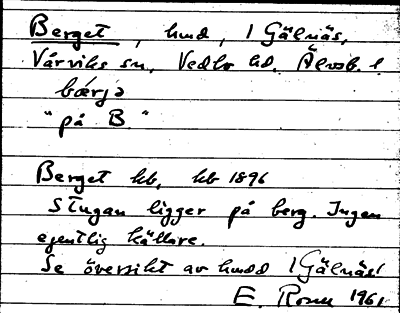 Berget, hmd, 1 Gälnäs,
Várviks sn, Vedbo hd. Älvsb. l.
bærjə
"på B."
Berget hb, hb 1896
Stugan ligger på berg. Ingen
egentlig källare.
Se översikt av hmdd 1 Gälnäs!
E. Rosm 1961